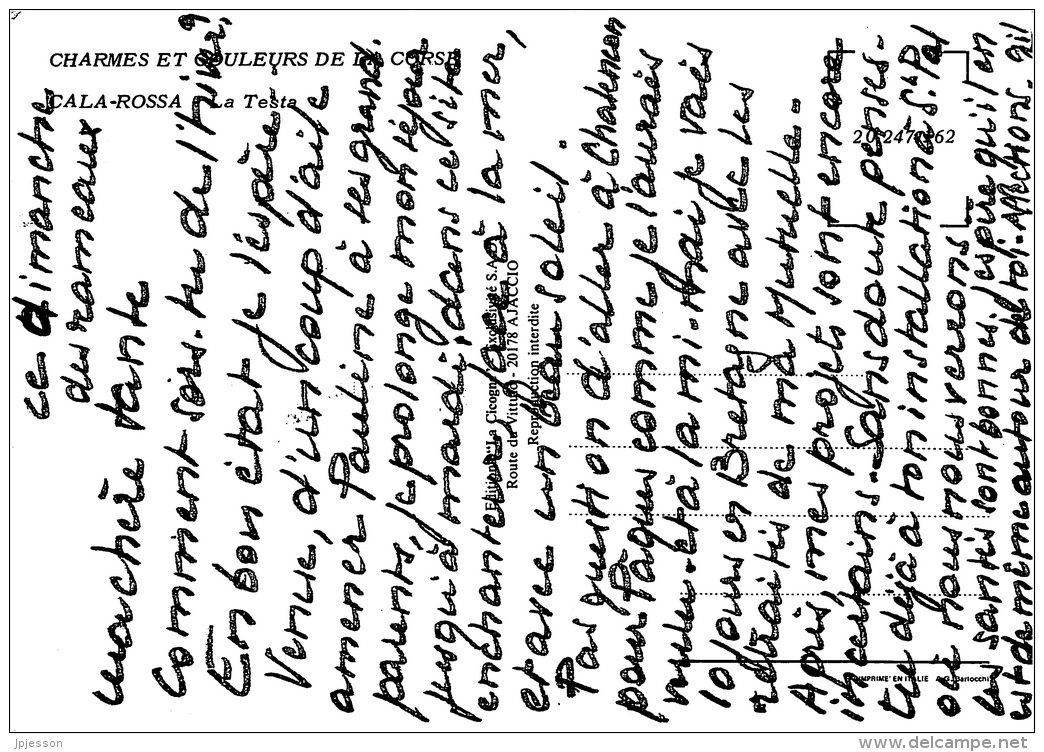 CHARMES ET COULEURS DE LA CORSE
CALA-ROSSA La Testa
20.247.162
Editions "La Cicogna" Exclusivité S.A.
Route du Vittulo - 20178 AJACCIO
Reproduction interdite
IMPRIME' EN ITALIE
ce dimanche
des rameaux
ma chère tante
Comment sors-tu de l'hiver?
En bon état je l'espère.
Venue, d'un coup d'aile
amener Pauline à ses grand.
parents, je prolonge mon séjour
jusqu'à mardi, dans ce site
enchanteur face à la mer,
et avec un beau soleil.
Pas question d'aller à Chatenon
pour Pâques comme je l'aurais
voulu. et à la mi-Mai je vais
10 jours en Bretagne avec les
retraités de ma Mutuelle.
Après, mes projets sont encore
incertains. Sans doute penses.
tu déjà à ton installation à St P
où nous nous verrons.
Les santés sont bonnes. J'espère qu'il en
est de même autour de toi. Affections. Gil
jpjesson
www.delcampe.net